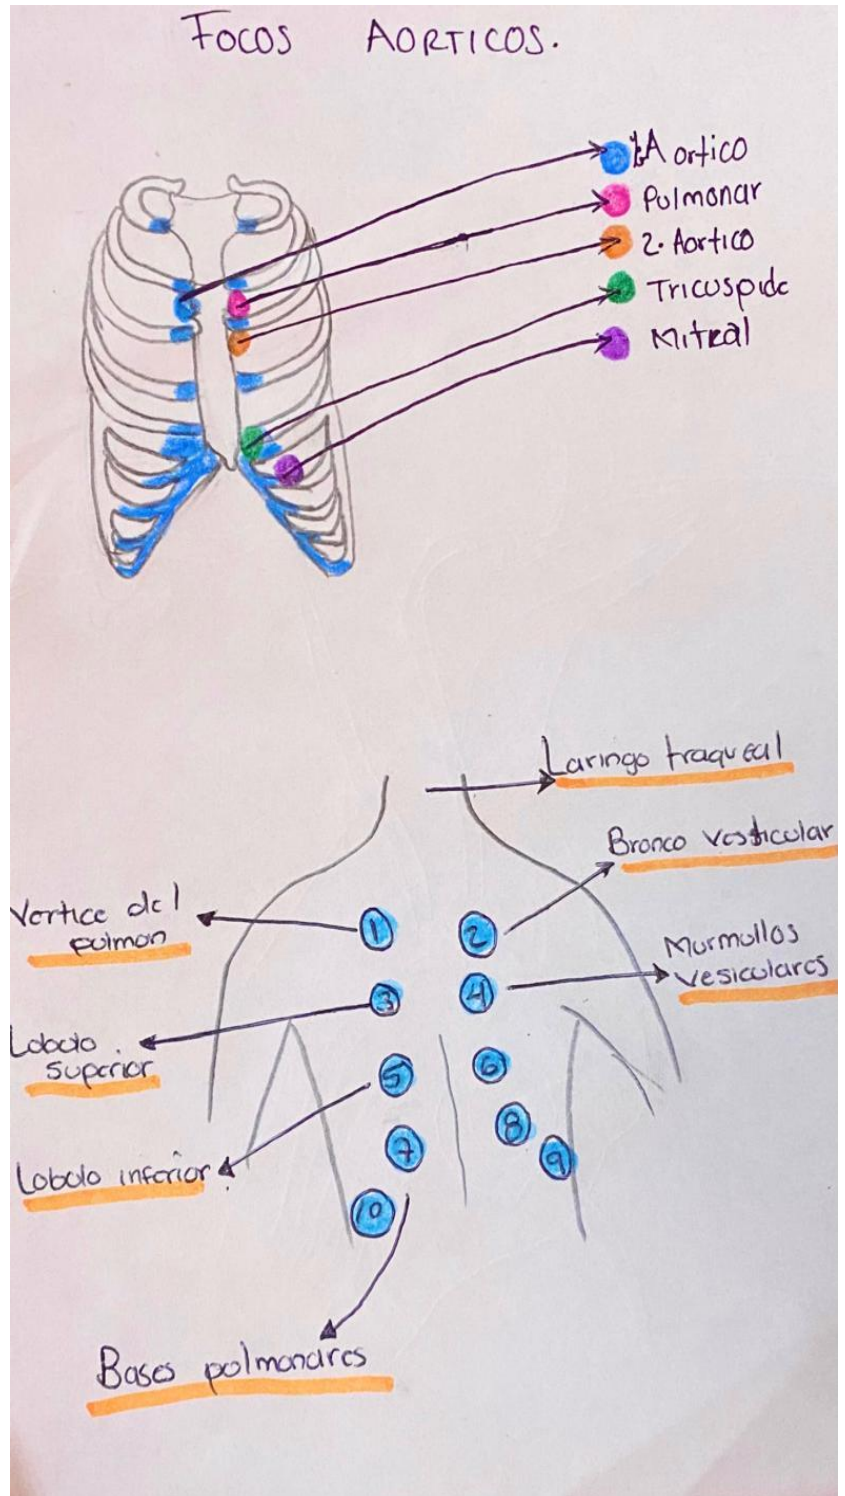 FOCOS AORTICOS.
1.Aortico
Pulmonar
2. Aortico
Tricuspide
Mitral
Laringo traqueal
Bronco vesticular
Vertice del
pulmon
1
2
Murmullos
vesiculares
3
4
Lobulo
superior
5
6
7
8
9
Lobulo inferior
10
Bases pulmonares